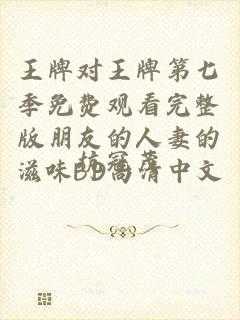 王牌对王牌第七
季免费观看完整
版朋友的人妻的
滋味BD高清中文